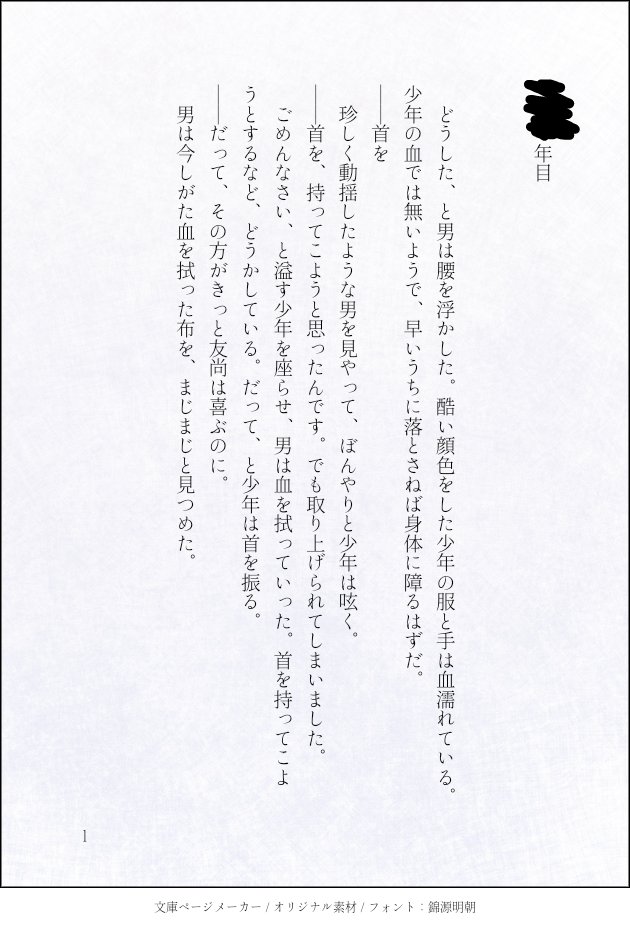 年目
どうした、と男は腰を浮かした。酷い顔色をした少年の服と手は血濡れている。
少年の血では無いようで、早いうちに落とさねば身体に障るはずだ。
――首を
珍しく動揺したような男を見やって、ぼんやりと少年は呟く。
――首を、持ってこようと思ったんです。でも取り上げられてしまいました。
ごめんなさい、と溢す少年を座らせ、男は血を拭っていった。首を持ってこよ
うとするなど、どうかしている。だって、と少年は首を振る。
――だって、その方がきっと友尚は喜ぶのに。
男は今しがた血を拭った布を、まじまじと見つめた。
1
文庫ページメーカー / オリジナル素材 / フォント：錦源明朝